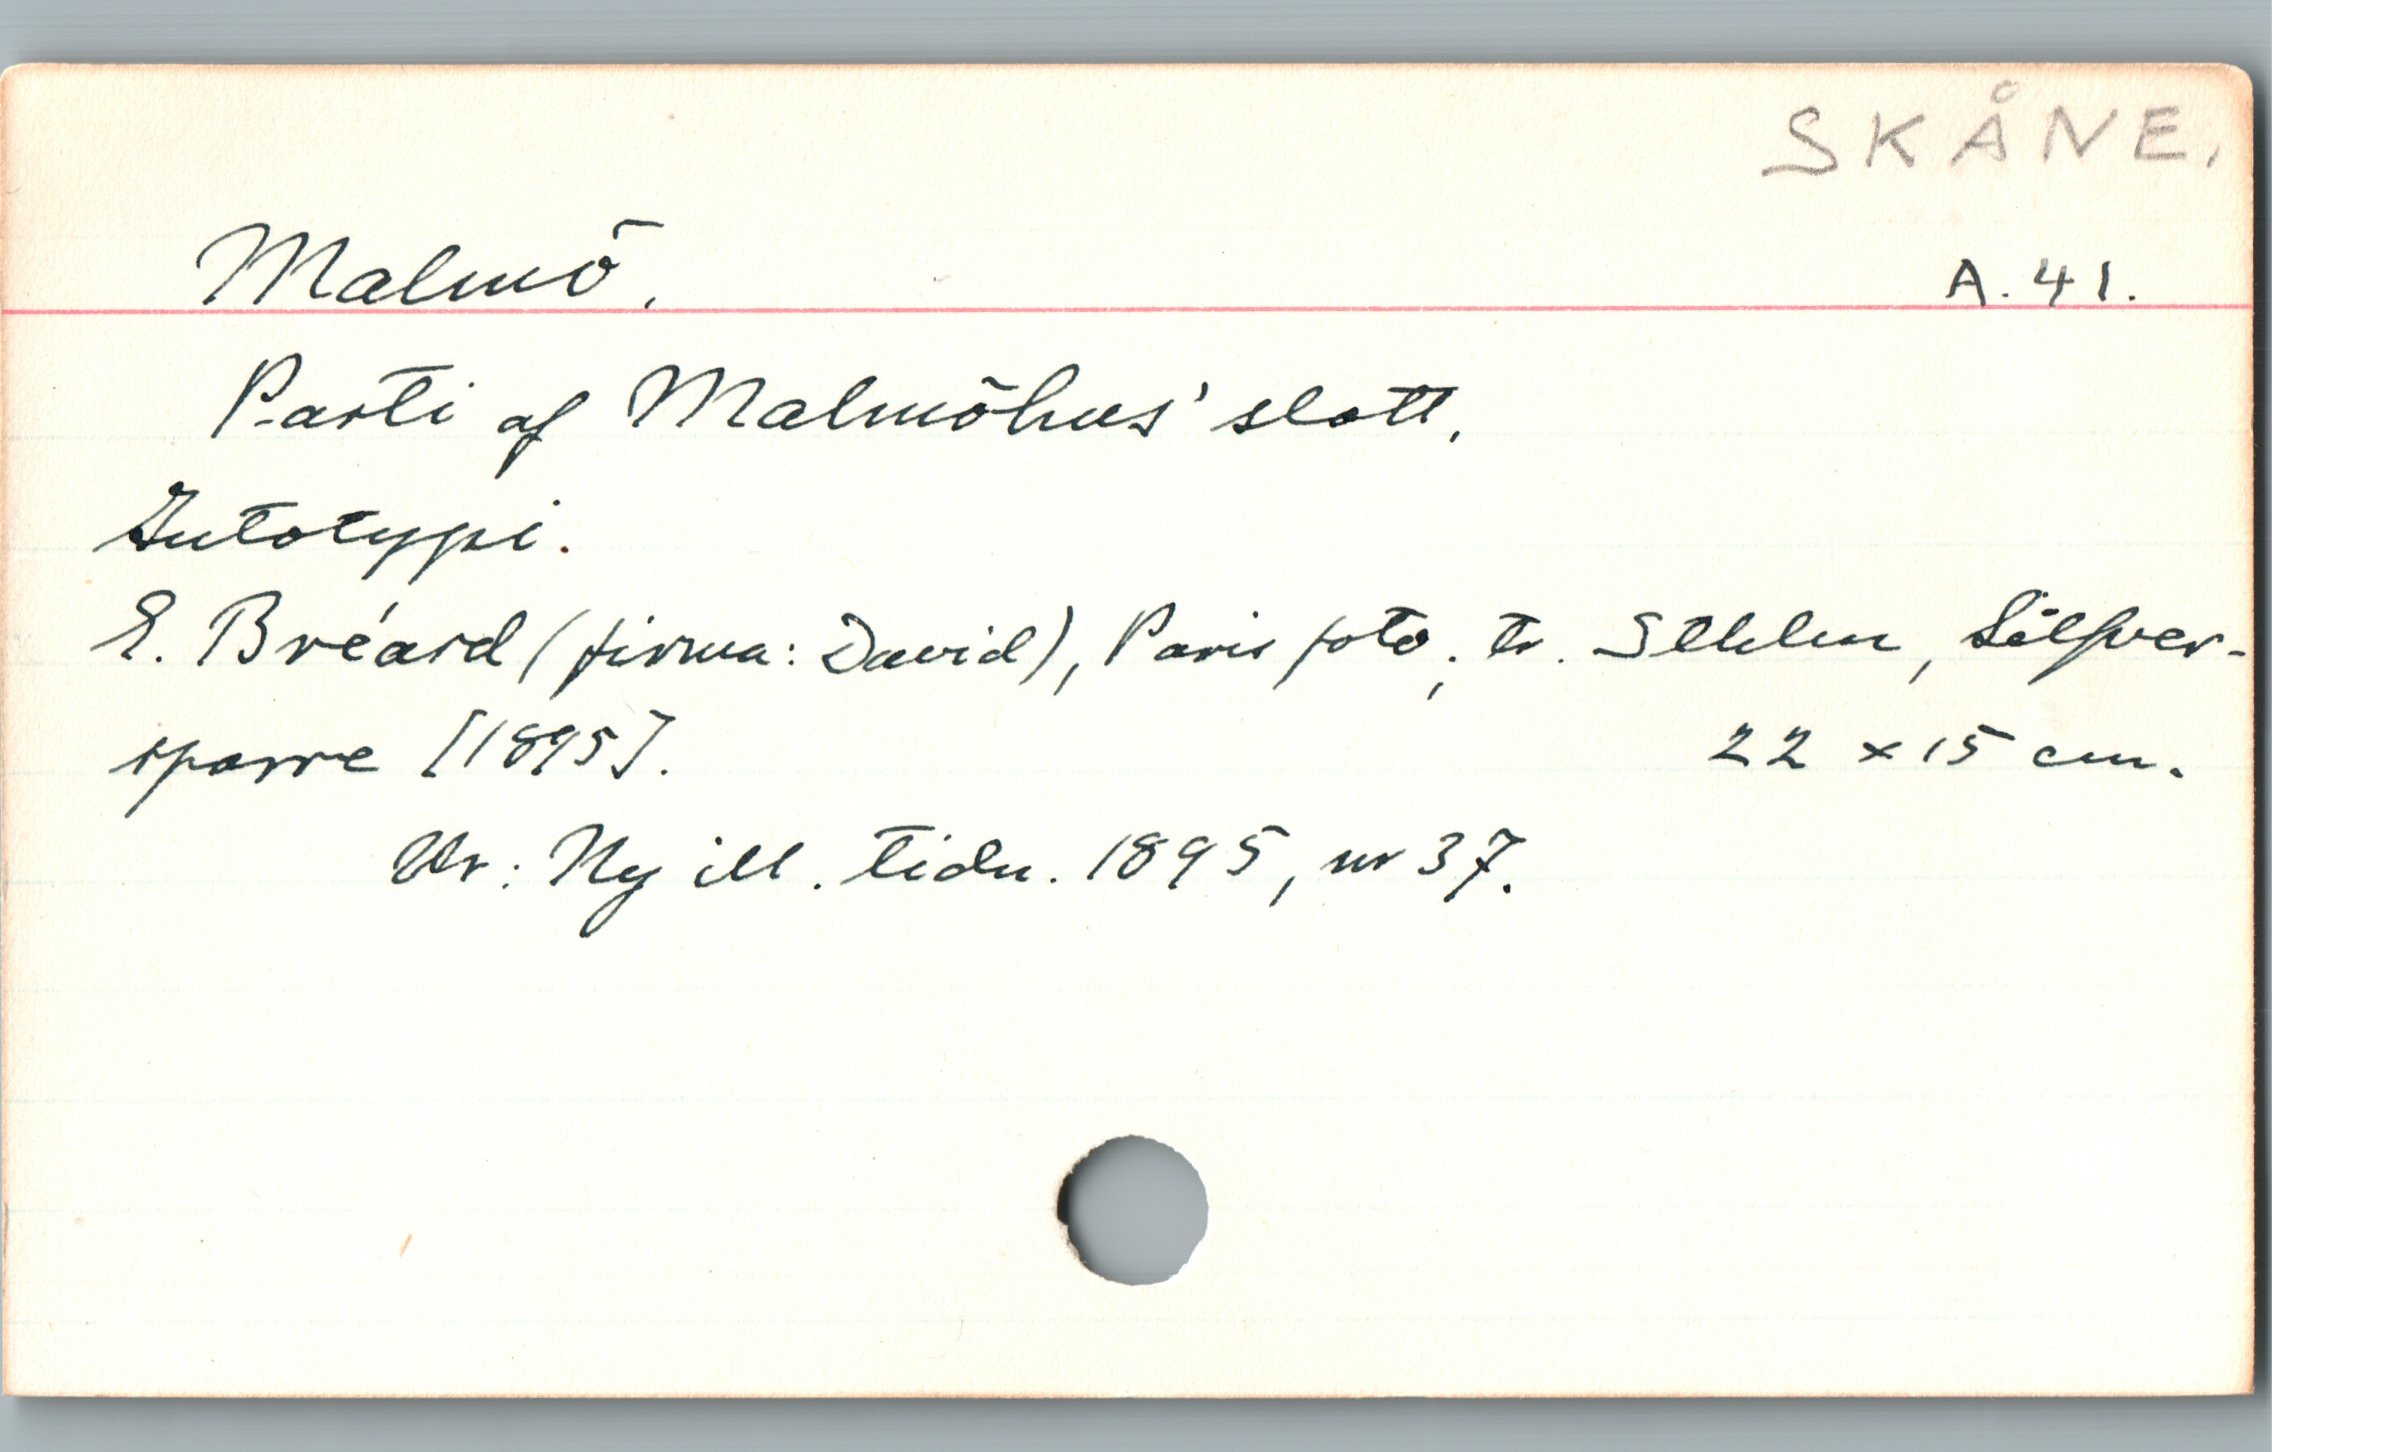 SKÅNE.
Malmö. A. 41.
Parti af Malmöhus' slott.
Autotypi.
E. Bréard (firma: David), Paris foto; tr. Sthlm, Silfver-
sparre [1895]. 22 x 15 cm.
Ur: Ny ill. tidn. 1895, nr 37.